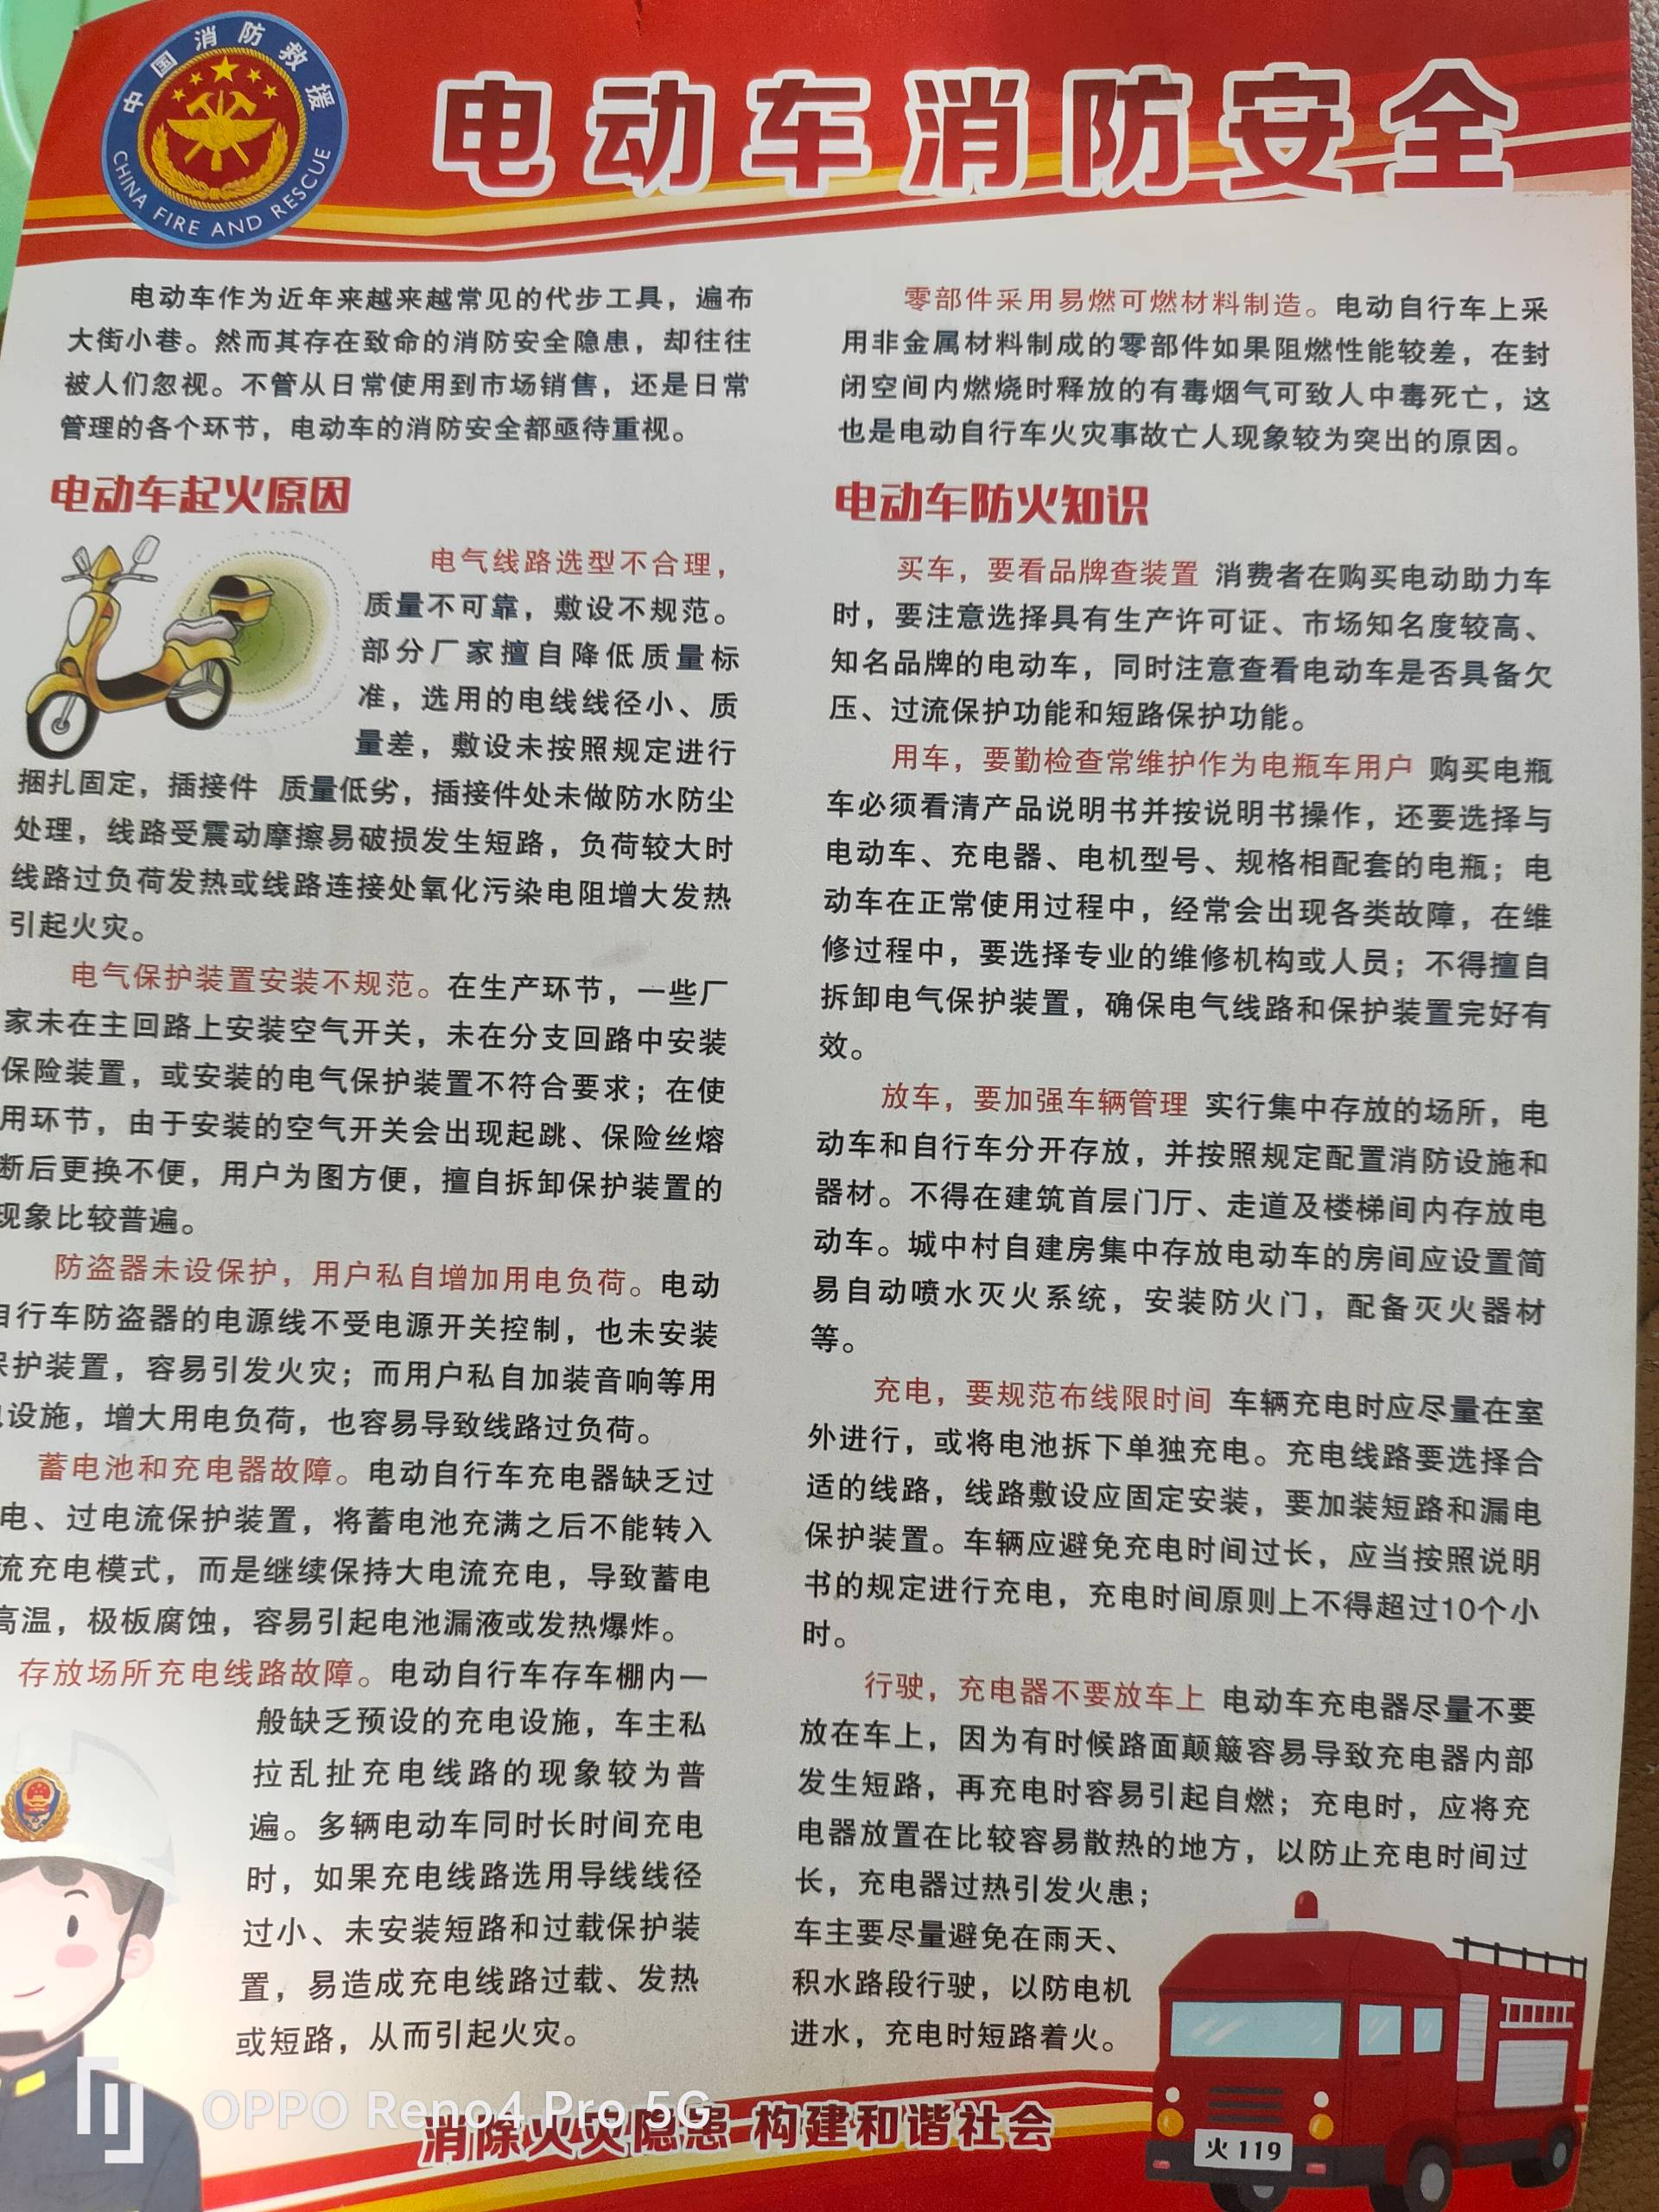 中国消防救援
CHINA FIRE AND RESCUE
电动车消防安全
电动车作为近年来越来越常见的代步工具，遍布
大街小巷。然而其存在致命的消防安全隐患，却往往
被人们忽视。不管从日常使用到市场销售，还是日常
管理的各个环节，电动车的消防安全都亟待重视。
电动车起火原因
电气线路选型不合理，
质量不可靠，敷设不规范。
部分厂家擅自降低质量标
准，选用的电线线径小、质
量差，敷设未按照规定进行
捆扎固定，插接件 质量低劣，插接件处未做防水防尘
处理，线路受震动摩擦易破损发生短路，负荷较大时
线路过负荷发热或线路连接处氧化污染电阻增大发热
引起火灾。
电气保护装置安装不规范。在生产环节，一些厂
家未在主回路上安装空气开关，未在分支回路中安装
保险装置，或安装的电气保护装置不符合要求；在使
用环节，由于安装的空气开关会出现起跳、保险丝熔
断后更换不便，用户为图方便，擅自拆卸保护装置的
现象比较普遍。
防盗器未设保护，用户私自增加用电负荷。电动
自行车防盗器的电源线不受电源开关控制，也未安装
保护装置，容易引发火灾；而用户私自加装音响等用
电设施，增大用电负荷，也容易导致线路过负荷。
蓄电池和充电器故障。电动自行车充电器缺乏过
电、过电流保护装置，将蓄电池充满之后不能转入
流充电模式，而是继续保持大电流充电，导致蓄电
高温，极板腐蚀，容易引起电池漏液或发热爆炸。
存放场所充电线路故障。电动自行车存车棚内一
般缺乏预设的充电设施，车主私
拉乱扯充电线路的现象较为普
遍。多辆电动车同时长时间充电
时，如果充电线路选用导线线径
过小、未安装短路和过载保护装
置，易造成充电线路过载、发热
或短路，从而引起火灾。
零部件采用易燃可燃材料制造。电动自行车上采
用非金属材料制成的零部件如果阻燃性能较差，在封
闭空间内燃烧时释放的有毒烟气可致人中毒死亡，这
也是电动自行车火灾事故亡人现象较为突出的原因。
电动车防火知识
买车，要看品牌查装置 消费者在购买电动助力车
时，要注意选择具有生产许可证、市场知名度较高、
知名品牌的电动车，同时注意查看电动车是否具备欠
压、过流保护功能和短路保护功能。
用车，要勤检查常维护作为电瓶车用户 购买电瓶
车必须看清产品说明书并按说明书操作，还要选择与
电动车、充电器、电机型号、规格相配套的电瓶；电
动车在正常使用过程中，经常会出现各类故障，在维
修过程中，要选择专业的维修机构或人员；不得擅自
拆卸电气保护装置，确保电气线路和保护装置完好有
效。
放车，要加强车辆管理 实行集中存放的场所，电
动车和自行车分开存放，并按照规定配置消防设施和
器材。不得在建筑首层门厅、走道及楼梯间内存放电
动车。城中村自建房集中存放电动车的房间应设置简
易自动喷水灭火系统，安装防火门，配备灭火器材
等。
充电，要规范布线限时间 车辆充电时应尽量在室
外进行，或将电池拆下单独充电。充电线路要选择合
适的线路，线路敷设应固定安装，要加装短路和漏电
保护装置。车辆应避免充电时间过长，应当按照说明
书的规定进行充电，充电时间原则上不得超过10个小
时。
行驶，充电器不要放车上 电动车充电器尽量不要
放在车上，因为有时候路面颠簸容易导致充电器内部
发生短路，再充电时容易引起自燃；充电时，应将充
电器放置在比较容易散热的地方，以防止充电时间过
长，充电器过热引发火患；
车主要尽量避免在雨天、
积水路段行驶，以防电机
进水，充电时短路着火。
火 119
消除火灾隐患 构建和谐社会
OPPO Reno4 Pro 5G